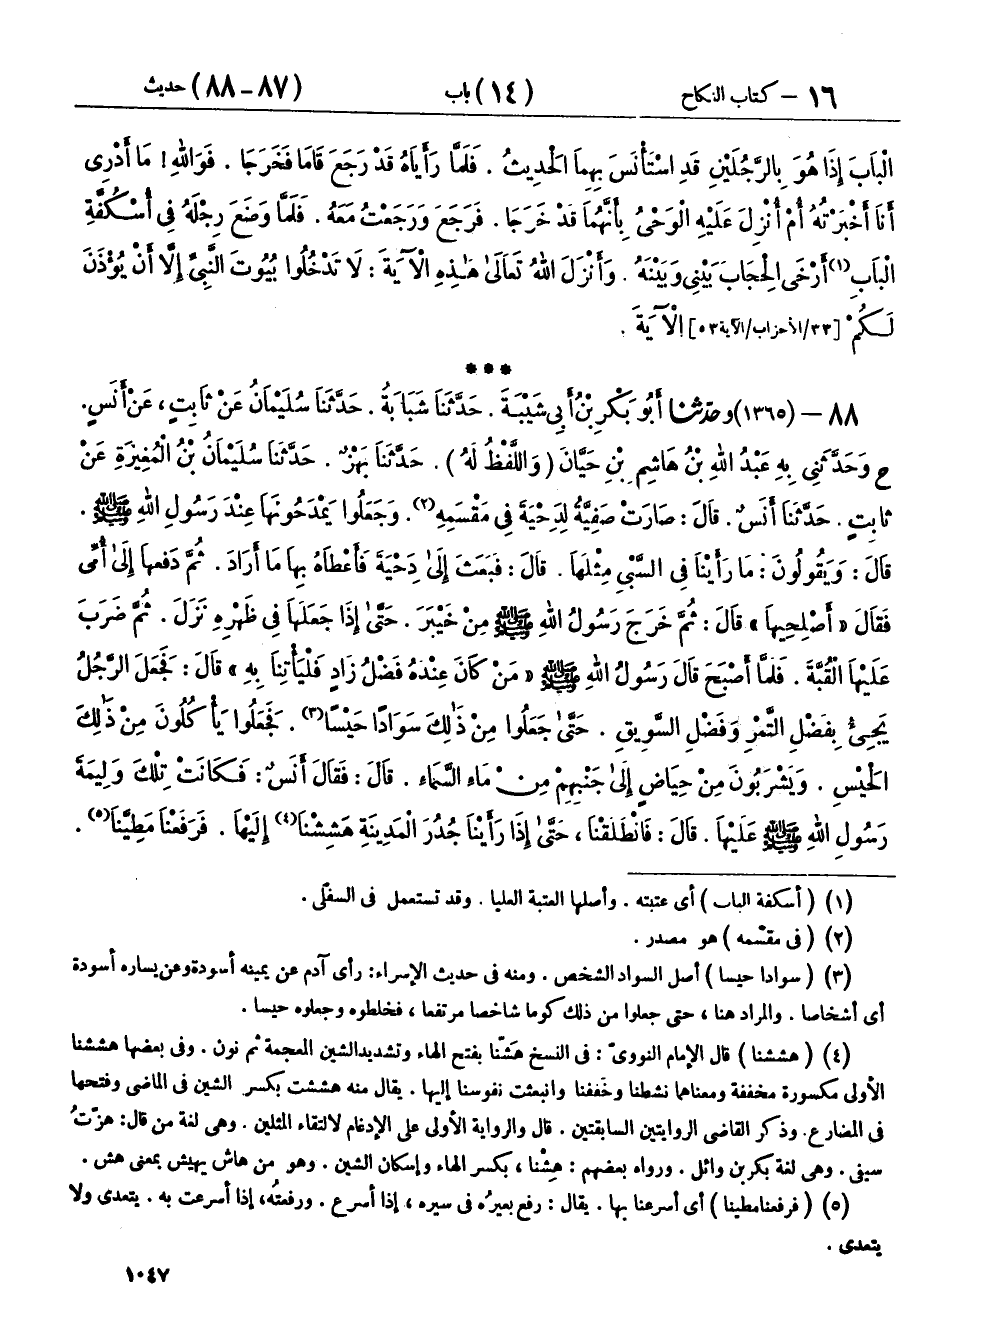 ١٦ – كتاب النكاح (١٤) باب (٨٧–٨٨) حديث
الْبَابَ إِذَا هُوَ بِالرَّجُلَيْنِ قَدِ اسْتَأْنَسَ بِهِمَا الْحَدِيثُ . فَلَمَّا رَأَيَاهُ قَدْ رَجَعَ قَامَا فَخَرَجَا . فَوَاللهِ ! مَا أَدْرِى
أَنَا أَخْبَرْتُهُ أَمْ أُنْزِلَ عَلَيْهِ الْوَحْىُ بِأَنَّهُمَا قَدْ خَرَجَا . فَرَجَعَ وَرَجَعْتُ مَعَهُ . فَلَمَّا وَضَعَ رِجْلَهُ فِى أُسْكُفَّةِ
الْبَابِ(١) أَرْخَى الْحِجَابَ بَيْنِى وَبَيْنَهُ . وَأَنْزَلَ اللهُ تَعَالَىٰ هَٰذِهِ الْآيَةَ : لَا تَدْخُلُوا بُيُوتَ النَّبِىِّ إِلَّا أَنْ يُؤْذَنَ
لَكُمْ [٣٣/الأحزاب/الآية ٥٣] الْآيَةَ .
***
٨٨ – (١٣٦٥) وحدّثنا أَبُو بَكْرِ بْنُ أَبِى شَيْبَةَ . حَدَّثَنَا شَبَابَةُ . حَدَّثَنَا سُلَيْمَانُ عَنْ ثَابِتٍ ، عَنْ أَنَسٍ .
ح وَحَدَّثَنِى بِهِ عَبْدُ اللهِ بْنُ هَاشِمِ بْنِ حَيَّانَ (وَاللَّفْظُ لَهُ) . حَدَّثَنَا بَهْزٌ . حَدَّثَنَا سُلَيْمَانُ بْنُ الْمُغِيرَةِ عَنْ
ثَابِتٍ . حَدَّثَنَا أَنَسٌ . قَالَ : صَارَتْ صَفِيَّةُ لِدِحْيَةَ فِى مَقْسَمِهِ(٢) . وَجَعَلُوا يَمْدَحُونَهَا عِنْدَ رَسُولِ اللهِ ﷺ .
قَالَ : وَيَقُولُونَ : مَا رَأَيْنَا فِى السَّبْىِ مِثْلَهَا . قَالَ : فَبَعَثَ إِلَىٰ دِحْيَةَ فَأَعْطَاهُ بِهَا مَا أَرَادَ . ثُمَّ دَفَعَهَا إِلَىٰ أُمِّى
فَقَالَ « أَصْلِحِيهَا » قَالَ : ثُمَّ خَرَجَ رَسُولُ اللهِ ﷺ مِنْ خَيْبَرَ . حَتَّىٰ إِذَا جَعَلَهَا فِى ظَهْرِهِ نَزَلَ . ثُمَّ ضَرَبَ
عَلَيْهَا الْقُبَّةَ . فَلَمَّا أَصْبَحَ قَالَ رَسُولُ اللهِ ﷺ « مَنْ كَانَ عِنْدَهُ فَضْلُ زَادٍ فَلْيَأْتِنَا بِهِ » قَالَ : فَجَعَلَ الرَّجُلُ
يَجِىءُ بِفَضْلِ التَّمْرِ وَفَضْلِ السَّوِيقِ . حَتَّىٰ جَعَلُوا مِنْ ذَٰلِكَ سَوَادًا حَيْسًا(٣) . فَجَعَلُوا يَأْكُلُونَ مِنْ ذَٰلِكَ
الْحَيْسِ . وَيَشْرَبُونَ مِنْ حِيَاضٍ إِلَىٰ جَنْبِهِمْ مِنْ مَاءِ السَّمَاءِ . قَالَ : فَقَالَ أَنَسٌ : فَكَانَتْ تِلْكَ وَلِيمَةَ
رَسُولِ اللهِ ﷺ عَلَيْهَا . قَالَ : فَانْطَلَقْنَا ، حَتَّىٰ إِذَا رَأَيْنَا جُدُرَ الْمَدِينَةِ هَشِشْنَا(٤) إِلَيْهَا . فَرَفَعْنَا مَطِيَّنَا(٥) .
(١) ( أسكفة الباب ) أى عتبته . وأصلها العتبة العليا . وقد تستعمل فى السفلى .
(٢) ( فى مقسمه ) هو مصدر .
(٣) ( سوادا حيسا ) أصل السواد الشخص . ومنه فى حديث الإسراء: رأى آدم عن يمينه أسودة وعن يساره أسودة
أى أشخاصا . والمراد هنا ، حتى جعلوا من ذلك كوما شاخصا مرتفعا ، فخلطوه وجعلوه حيسا .
(٤) ( هششنا ) قال الإمام النووىّ : فى النسخ هَشَّنا بفتح الهاء وتشديد الشين المعجمة ثم نون . وفى بعضها هششنا
الأولى مكسورة مخففة ومعناهما نشطنا وخففنا وانبعثت نفوسنا إليها . يقال منه هششت بكسر الشين فى الماضى وفتحها
فى المضارع. وذكر القاضى الروايتين السابقتين . قال والرواية الأولى على الإدغام لالتقاء المثلين . وهى لغة من قال: هزّتُ
سيفى . وهى لغة بكر بن وائل . ورواه بعضهم : هِشْنا ، بكسر الهاء وإسكان الشين . وهو من هاش يهيش بمعنى هش .
(٥) ( فرفعنا مطينا ) أى أسرعنا بها . يقال : رفع بعيرُه فى سيره ، إذا أسرع . ورفعتُه، إذا أسرعت به . يتعدى ولا
يتعدى .
١٠٤٧